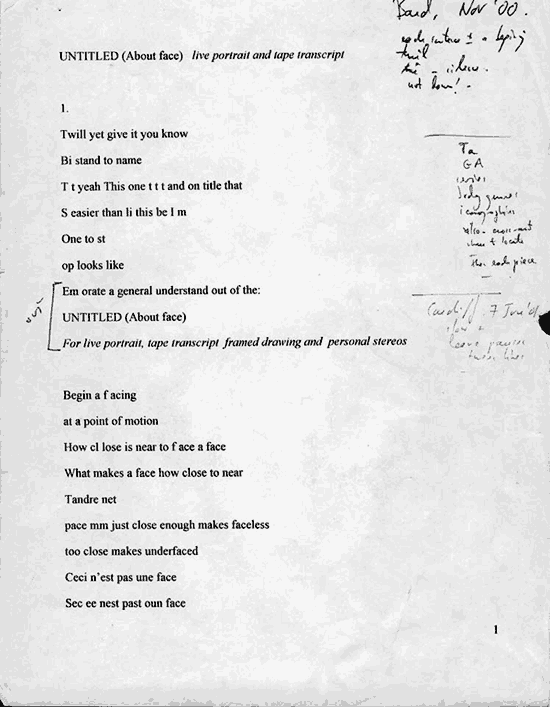 Bard, Nov '00.
not
UNTITLED (About face) live portrait and tape transcript
1.
Twill yet give it you know
Bi stand to name
T t yeah This one t t t and on title that
S easier than li this be I m
One to st
op looks like
Em orate a general understand out of the:
UNTITLED (About face)
For live portrait, tape transcript framed drawing and personal stereos
Ta
GA
series
body genres
iconographies
also - cross-art
where to locate
Then each piece
Cardiff 7 June '01
slow &
leave pauses
Begin a f acing
at a point of motion
How cl lose is near to f ace a face
What makes a face how close to near
Tandre net
pace mm just close enough makes faceless
too close makes underfaced
Ceci n'est pas une face
Sec ee nest past oun face
1